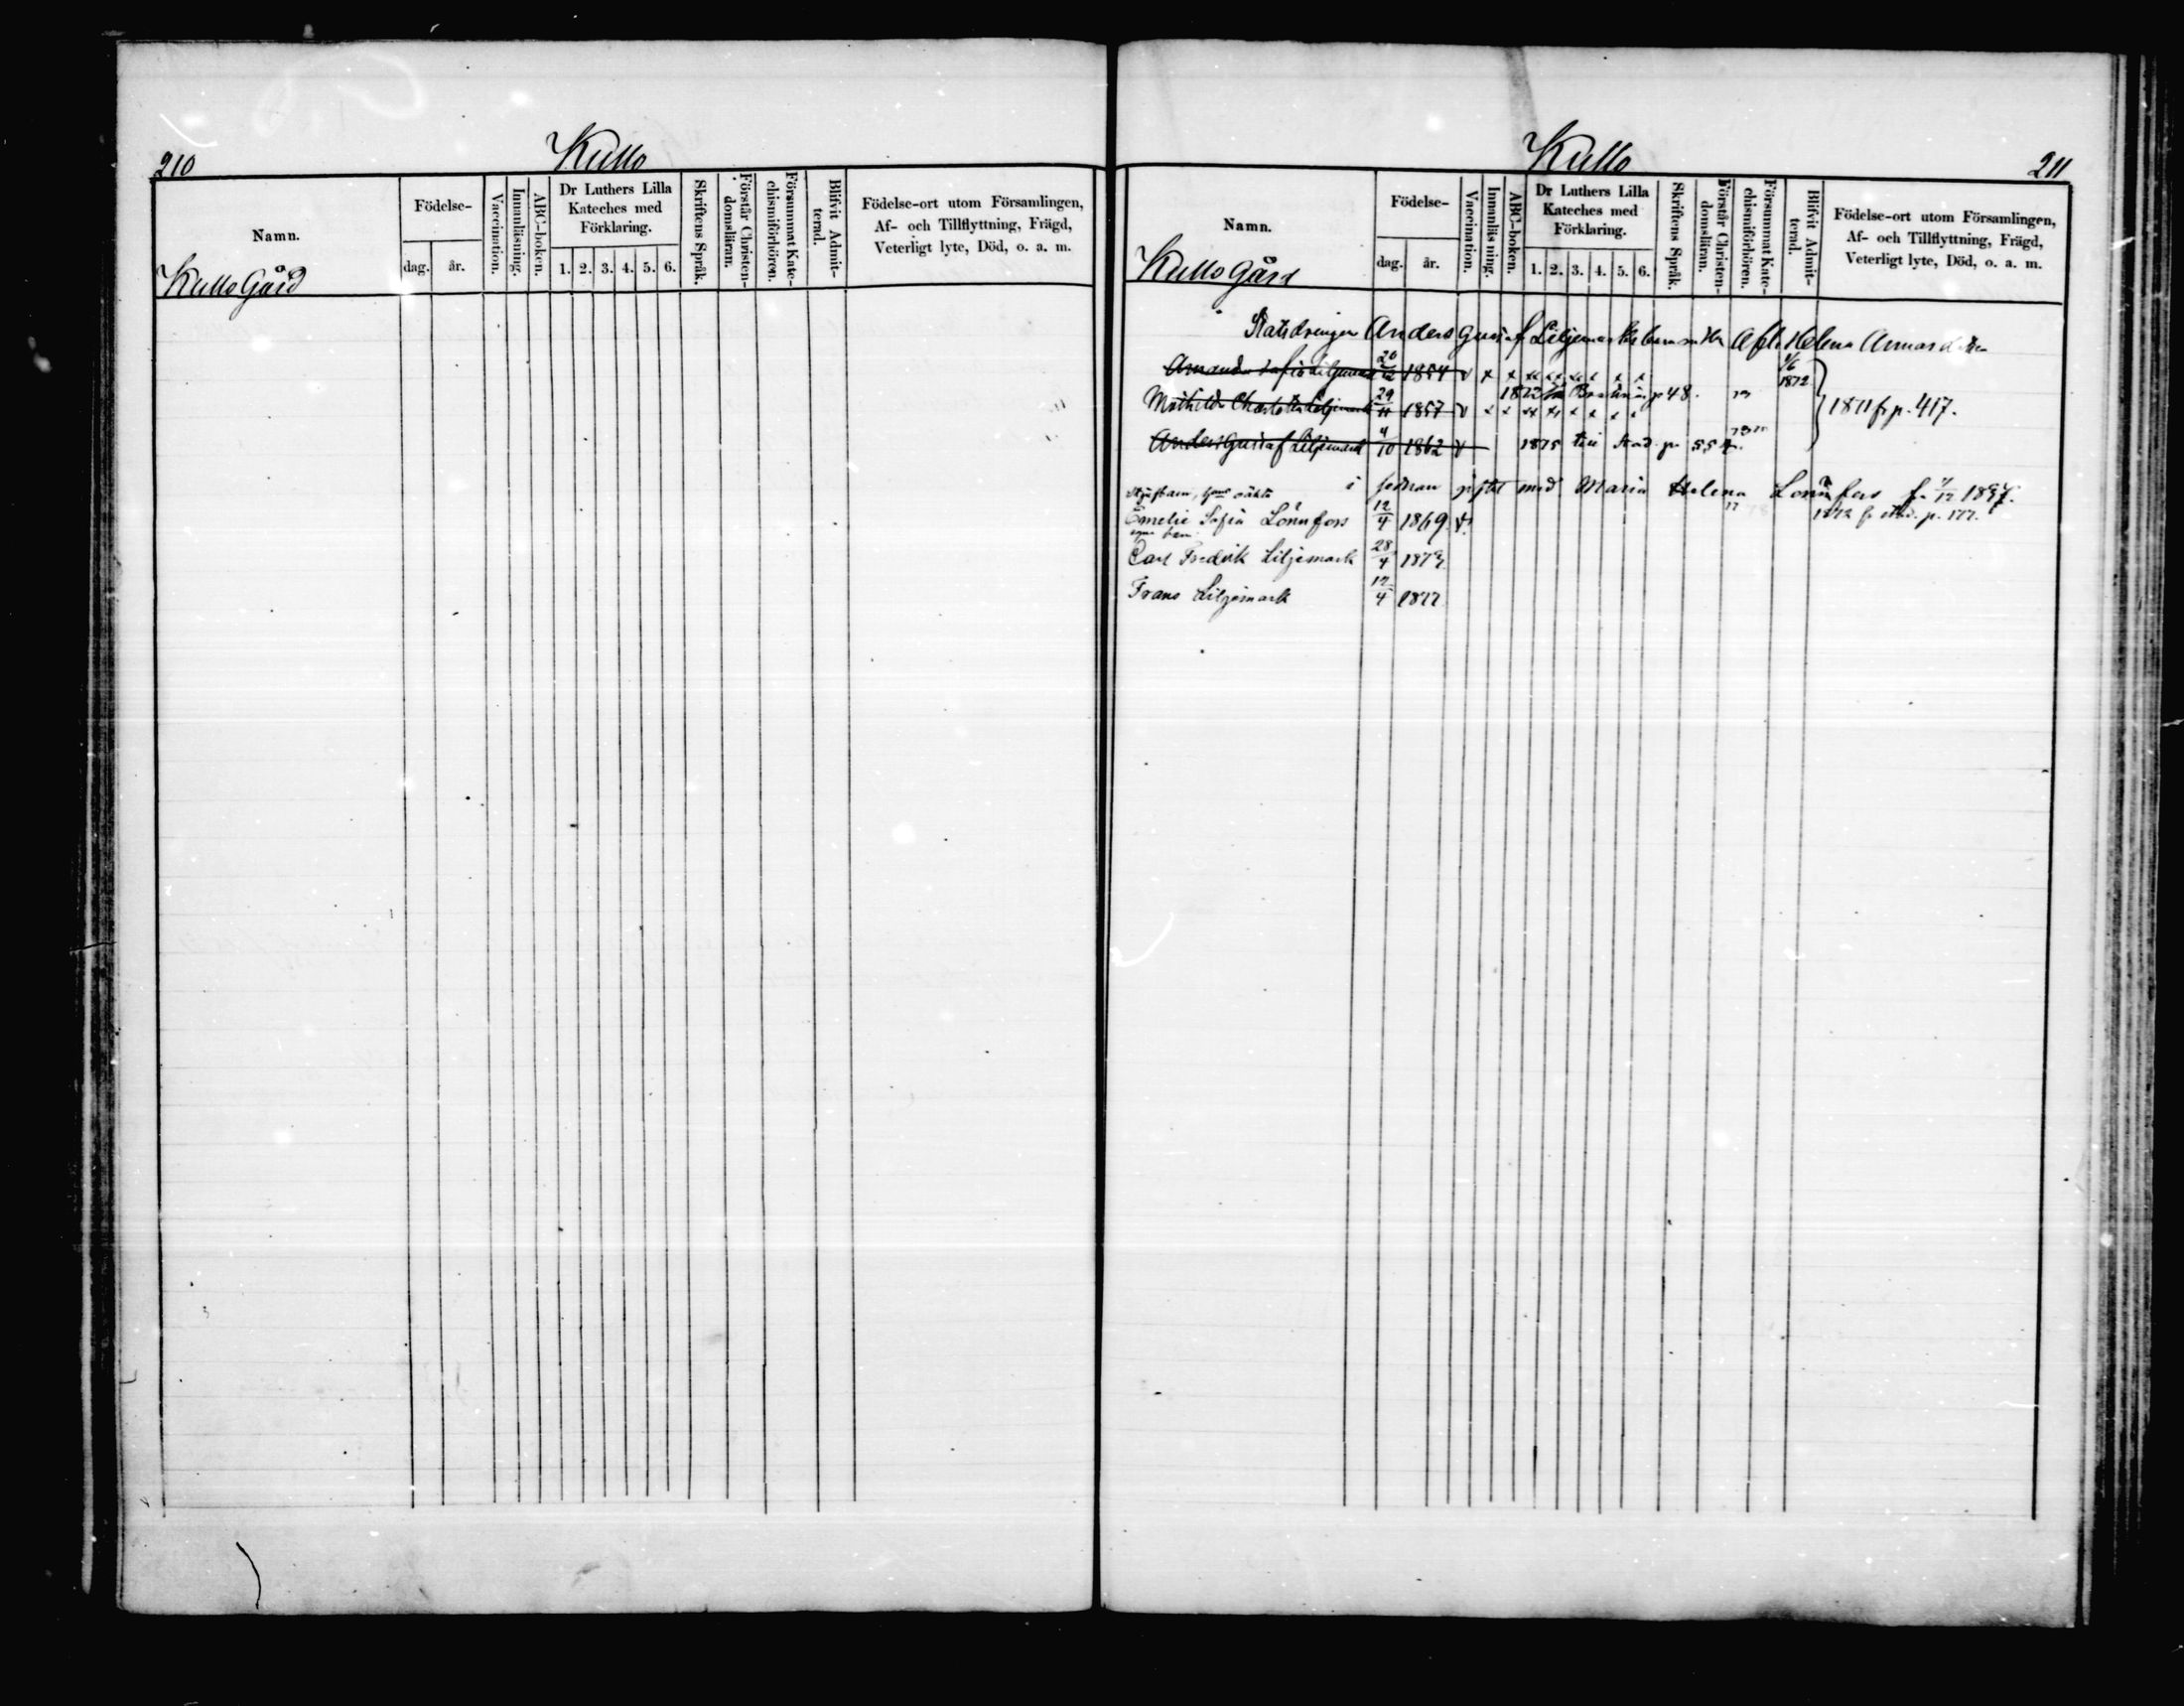 210
Kullo
Namn.
Födelse-
dag.
år.
Vaccination.
Innanläsning.
ABC-boken.
Dr Luthers Lilla
Kateches med
Förklaring.
1. 2. 3. 4. 5. 6.
Skriftens Språk.
Förstår Christen-
domsläran.
Försummat Kate-
chismiförhören.
Blifvit Admit-
terad.
Födelse-ort utom Församlingen,
Af- och Tillflyttning, Frägd,
Veterligt lyte, Död, o. a. m.
Kullo Gård
Kullo
211
Namn.
Födelse-
dag.
år.
Vaccination.
Innanläsning.
ABC-boken.
Dr Luthers Lilla
Kateches med
Förklaring.
1. 2. 3. 4. 5. 6.
Skriftens Språk.
Förstår Christen-
domsläran.
Försummat Kate-
chismiförhören.
Blifvit Admit-
terad.
Födelse-ort utom Församlingen,
Af- och Tillflyttning, Frägd,
Veterligt lyte, Död, o. a. m.
Kullo Gård
Statsdrengen Anders Gustaf Liljemarks barn m Helena
Amanda Sofia Liljemark 20/12 1854 v x x x x x x x x 1/6 1872
1872 p 48.
Mathilda Charlotta Liljemark 29/11 1857 v x x x x x x x x 1871 fr p. 417.
Anders Gustaf Liljemark 4/10 1862 v 1875 till p. 554.
i sednare giftet med Maria Helena Lönnfors
Emelie Sofia Lönnfors 12/4 1869 v 1872 fr p. 177.
Carl Fredrik Liljemark 28/4 187
Frans Liljemark 17/4 1877